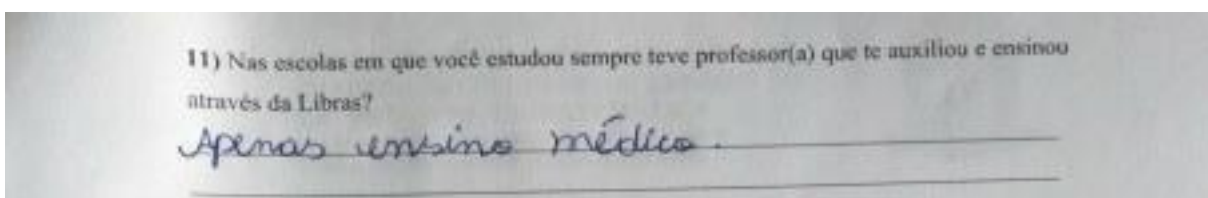 11) Nas escolas em que você estudou sempre teve professor(a) que te auxiliou e ensinou
através da Libras?
Apenas ensino médico.